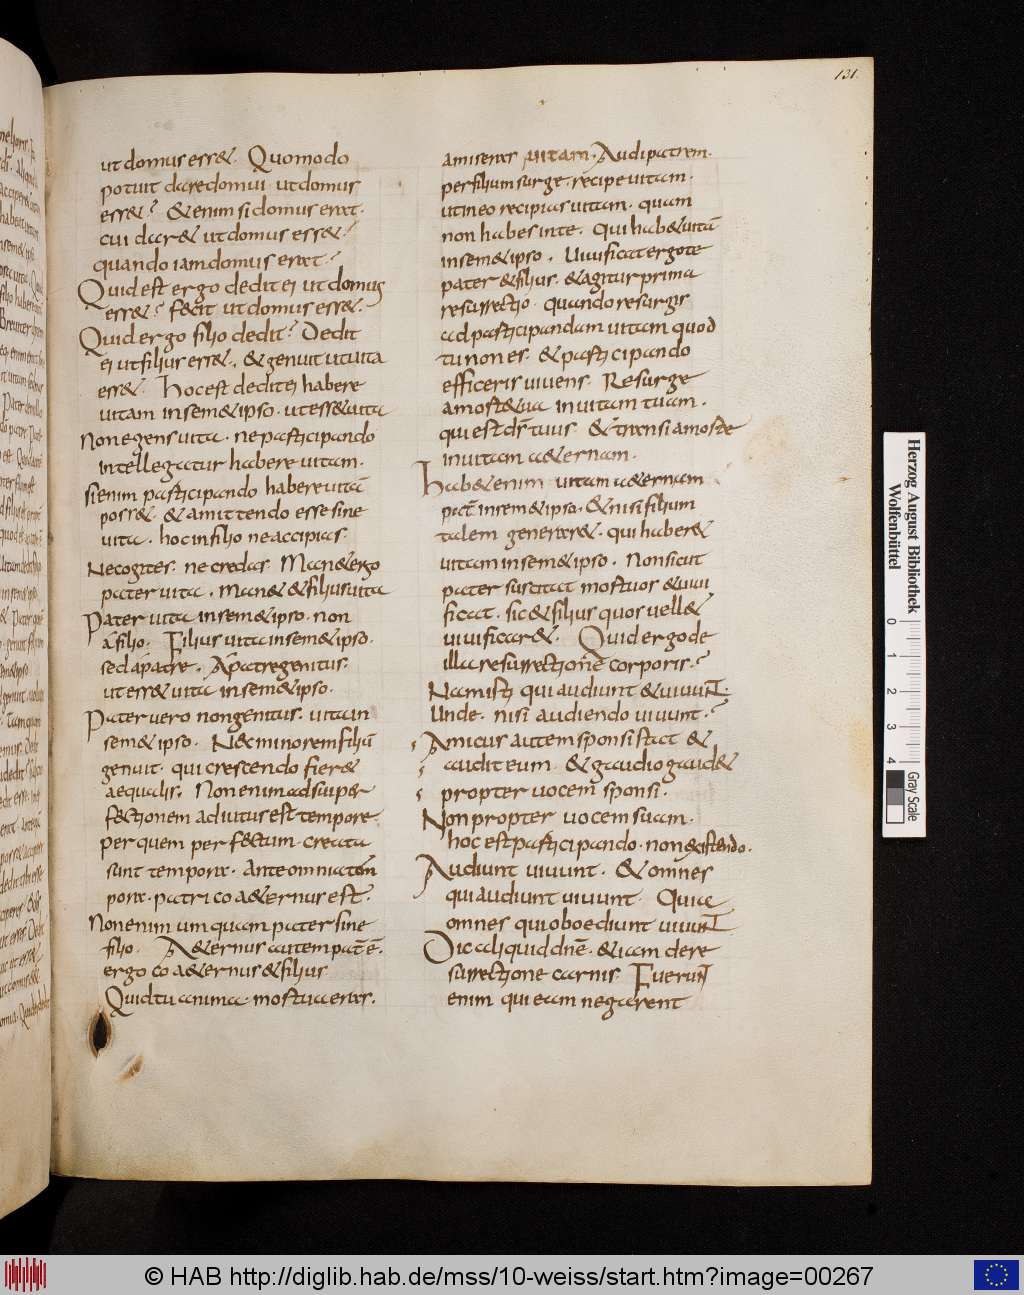 131.
ut domusess&. Quomodo
potuit daredomui. ut domus
ess&? &enim si domus erat.
cui dar& ut domus ess&?
quando iam domus erat?
Quid est ergo dedit ei ut domus
ess&? fecit ut domus ess&.
Quid ergo filio dedit? Dedit
ei ut filius ess&. & genuit ut uita
ess&. Hoc est dedit ei habere
uitam insem&ipso. ut ess& uita
Non egens uita. ne participando
intellegatur habere uitam.
si enim participando habere uitā
poss& & amittendo esse sine
uita. hoc in filio ne accipias.
Ne cogites. ne credas. Man& ergo
pater uita. Man& & filius uita
Pater uita insem&ipso. non
a filio. Filius uita insem&ipso.
sed a patre. A patre genitus.
ut ess& uita insem&ipso.
Pater uero non genitus. uita in
sem&ipso. Nec minorem filiū
genuit. qui crescendo fier&
aequalis. Non enim ad sui per
fectionem adiutus est tempore.
per quem perfectum. creata
sunt tempora. Ante omnia tem
pora. patri coa&ernus est.
Non enim umquam pater sine
filio. A&ernus autem pat̄ ē.
ergo coa&ernus & filius
Quid tu anima mortua eras.
amiseras uitam. Audi patrem.
per filium surge. recipe uitam.
ut in eo recipias uitam. quam
non habes in te. Qui hab& uitā
insem&ipso. Uiuificat ergo te
pater & filius. & agitur prima
resurrectio. quando resurgis
ad participandam uitam quod
tu non es. & participando
efficeris uiuens. Resurge
a morte tua in uitam tuam.
qui est ds̄ tuus. & transi a morte
in uitam a&ernam.
Hab& enim uitam a&ernam
pat̄ insem&ipso. & nisi filium
talem generar&. qui haber&
uitam insem&ipso. Non sicut
pater suscitat mortuos & uiui
ficat. sic & filius quos uell&
uiuificar&. Quid ergo de
illa resurrectione corporis?
Nam isti qui audiunt & uiuunt
Unde. nisi audiendo uiuunt?
Amicus autem sponsi stat &
audit eum. & gaudio gaud&
propter uocem sponsi.
Non propter uocem suam.
hoc est participando. non existendo.
Audiunt uiuunt. & omnes
qui audiunt uiuunt. Quia
omnes qui oboediunt uiuunt
Dic aliquid dn̄e. & iam de re
surrectione carnis. Fuerunt
enim qui eam negarent
Herzog August Bibliothek
Wolfenbüttel
0 1 2 3 4
Gray Scale
© HAB http://diglib.hab.de/mss/10-weiss/start.htm?image=00267